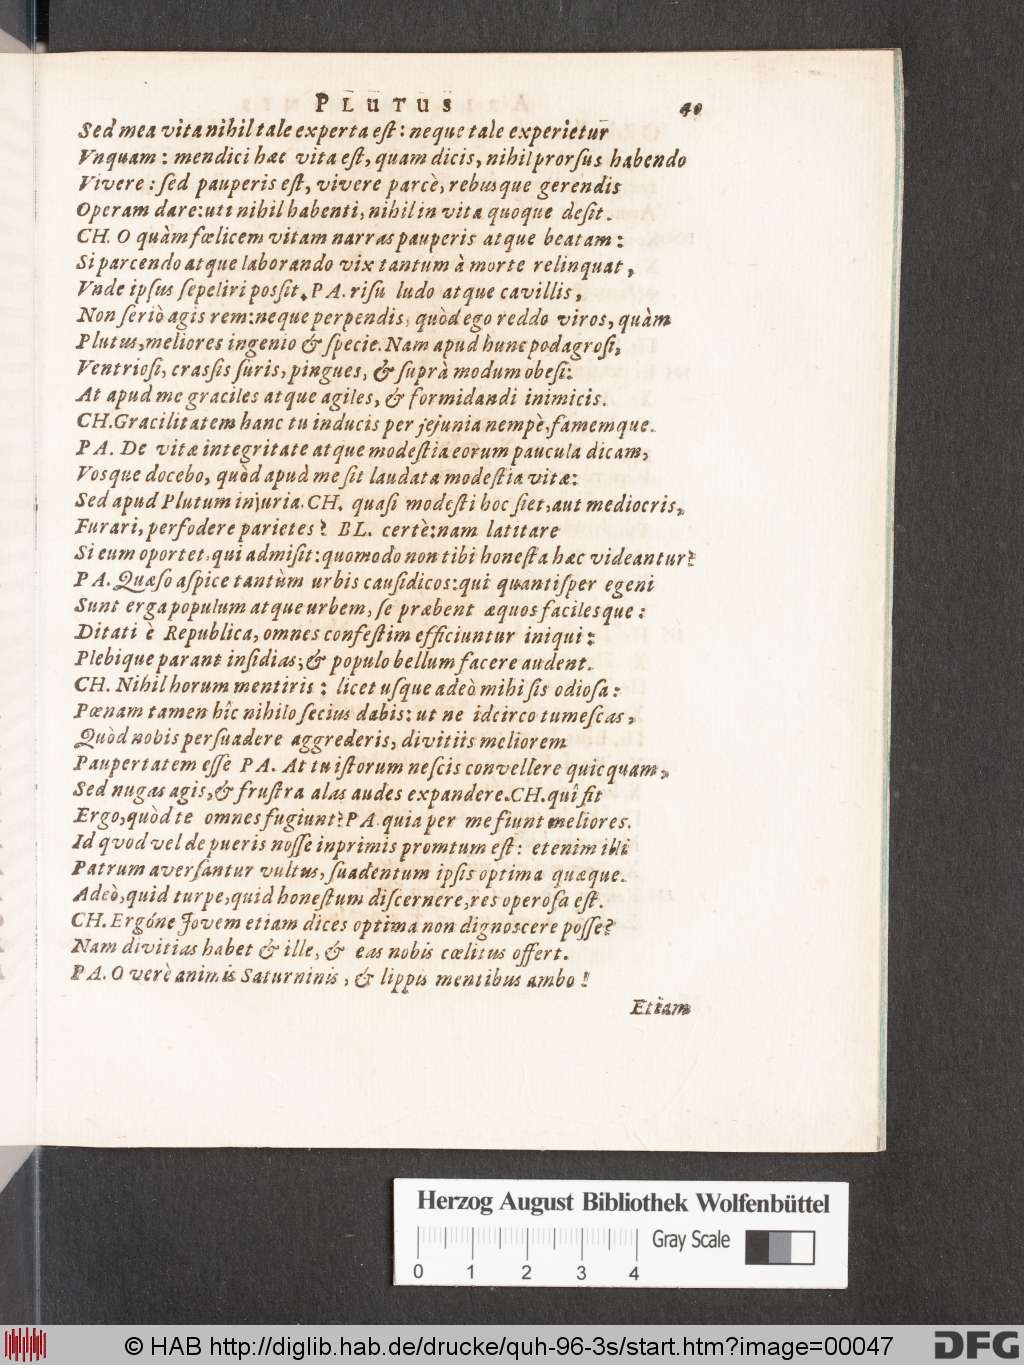 PLUTUS 40
Sed mea vita nihil tale experta est: neque tale experietur
Vnquam: mendici hæc vita est, quam dicis, nihil prorsus habendo
Vivere: sed pauperis est, vivere parcè, rebusque gerendis
Operam dare: uti nihil habenti, nihil in vita quoque desit.
CH. O quàm fœlicem vitam narras pauperis atque beatam:
Si parcendo atque laborando vix tantum à morte relinquat,
Vnde ipsus sepeliri possit. PA. risu ludo atque cavillis,
Non seriò agis rem: neque perpendis, quòd ego reddo viros, quàm
Plutus, meliores ingenio & specie. Nam apud hunc podagrosi,
Ventriosi, crassis suris, pingues, & suprà modum obesi:
At apud me graciles atque agiles, & formidandi inimicis.
CH. Gracilitatem hanc tu inducis per jejunia nempè, famemque.
PA. De vitæ integritate atque modestia eorum paucula dicam,
Vosque docebo, quòd apud me sit laudata modestia vitæ:
Sed apud Plutum injuria. CH. quasi modesti hoc siet, aut mediocris,
Furari, perfodere parietes? BL. certè: nam latitare
Si eum oportet, qui admisit: quomodo non tibi honesta hæc videantur?
PA. Quæso aspice tantùm urbis causidicos: qui quantisper egeni
Sunt erga populum atque urbem, se præbent æquos facilesque:
Ditati è Republica, omnes confestim efficiuntur iniqui:
Plebique parant insidias, & populo bellum facere audent.
CH. Nihil horum mentiris: licet usque adeò mihi sis odiosa:
Pœnam tamen hîc nihilo secius dabis: ut ne idcirco tumescas,
Quòd nobis persuadere aggrederis, divitiis meliorem
Paupertatem esse PA. At tu istorum nescis convellere quicquam,
Sed nugas agis, & frustra alas audes expandere. CH. quî fit
Ergo, quòd te omnes fugiunt? PA. quia per me fiunt meliores.
Id qvod vel de pueris nosse inprimis promtum est: etenim illi
Patrum aversantur vultus, suadentum ipsis optima quæque.
Adeò, quid turpe, quid honestum discernere, res operosa est.
CH. Ergóne Jovem etiam dices optima non dignoscere posse?
Nam divitias habet & ille, & eas nobis cœlitus offert.
PA. O verè animis Saturninis, & lippis mentibus ambo!
Etiam
Herzog August Bibliothek Wolfenbüttel
Gray Scale
0 1 2 3 4
© HAB http://diglib.hab.de/drucke/quh-96-3s/start.htm?image=00047
DFG